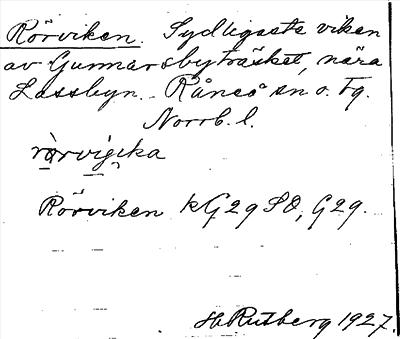 Rörviken. Sydligaste viken
av Gunnarsbyträsket, nära
Lassbyn. Råneå sn o. tg.
Norrb. l.
Rörviken kG29 SO, G29.
H. Rutberg 1927.